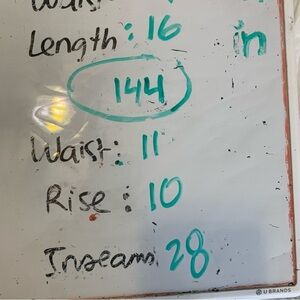 Length : 16 in
144
Waist : 11
Rise : 10
Inseam 28
U BRANDS